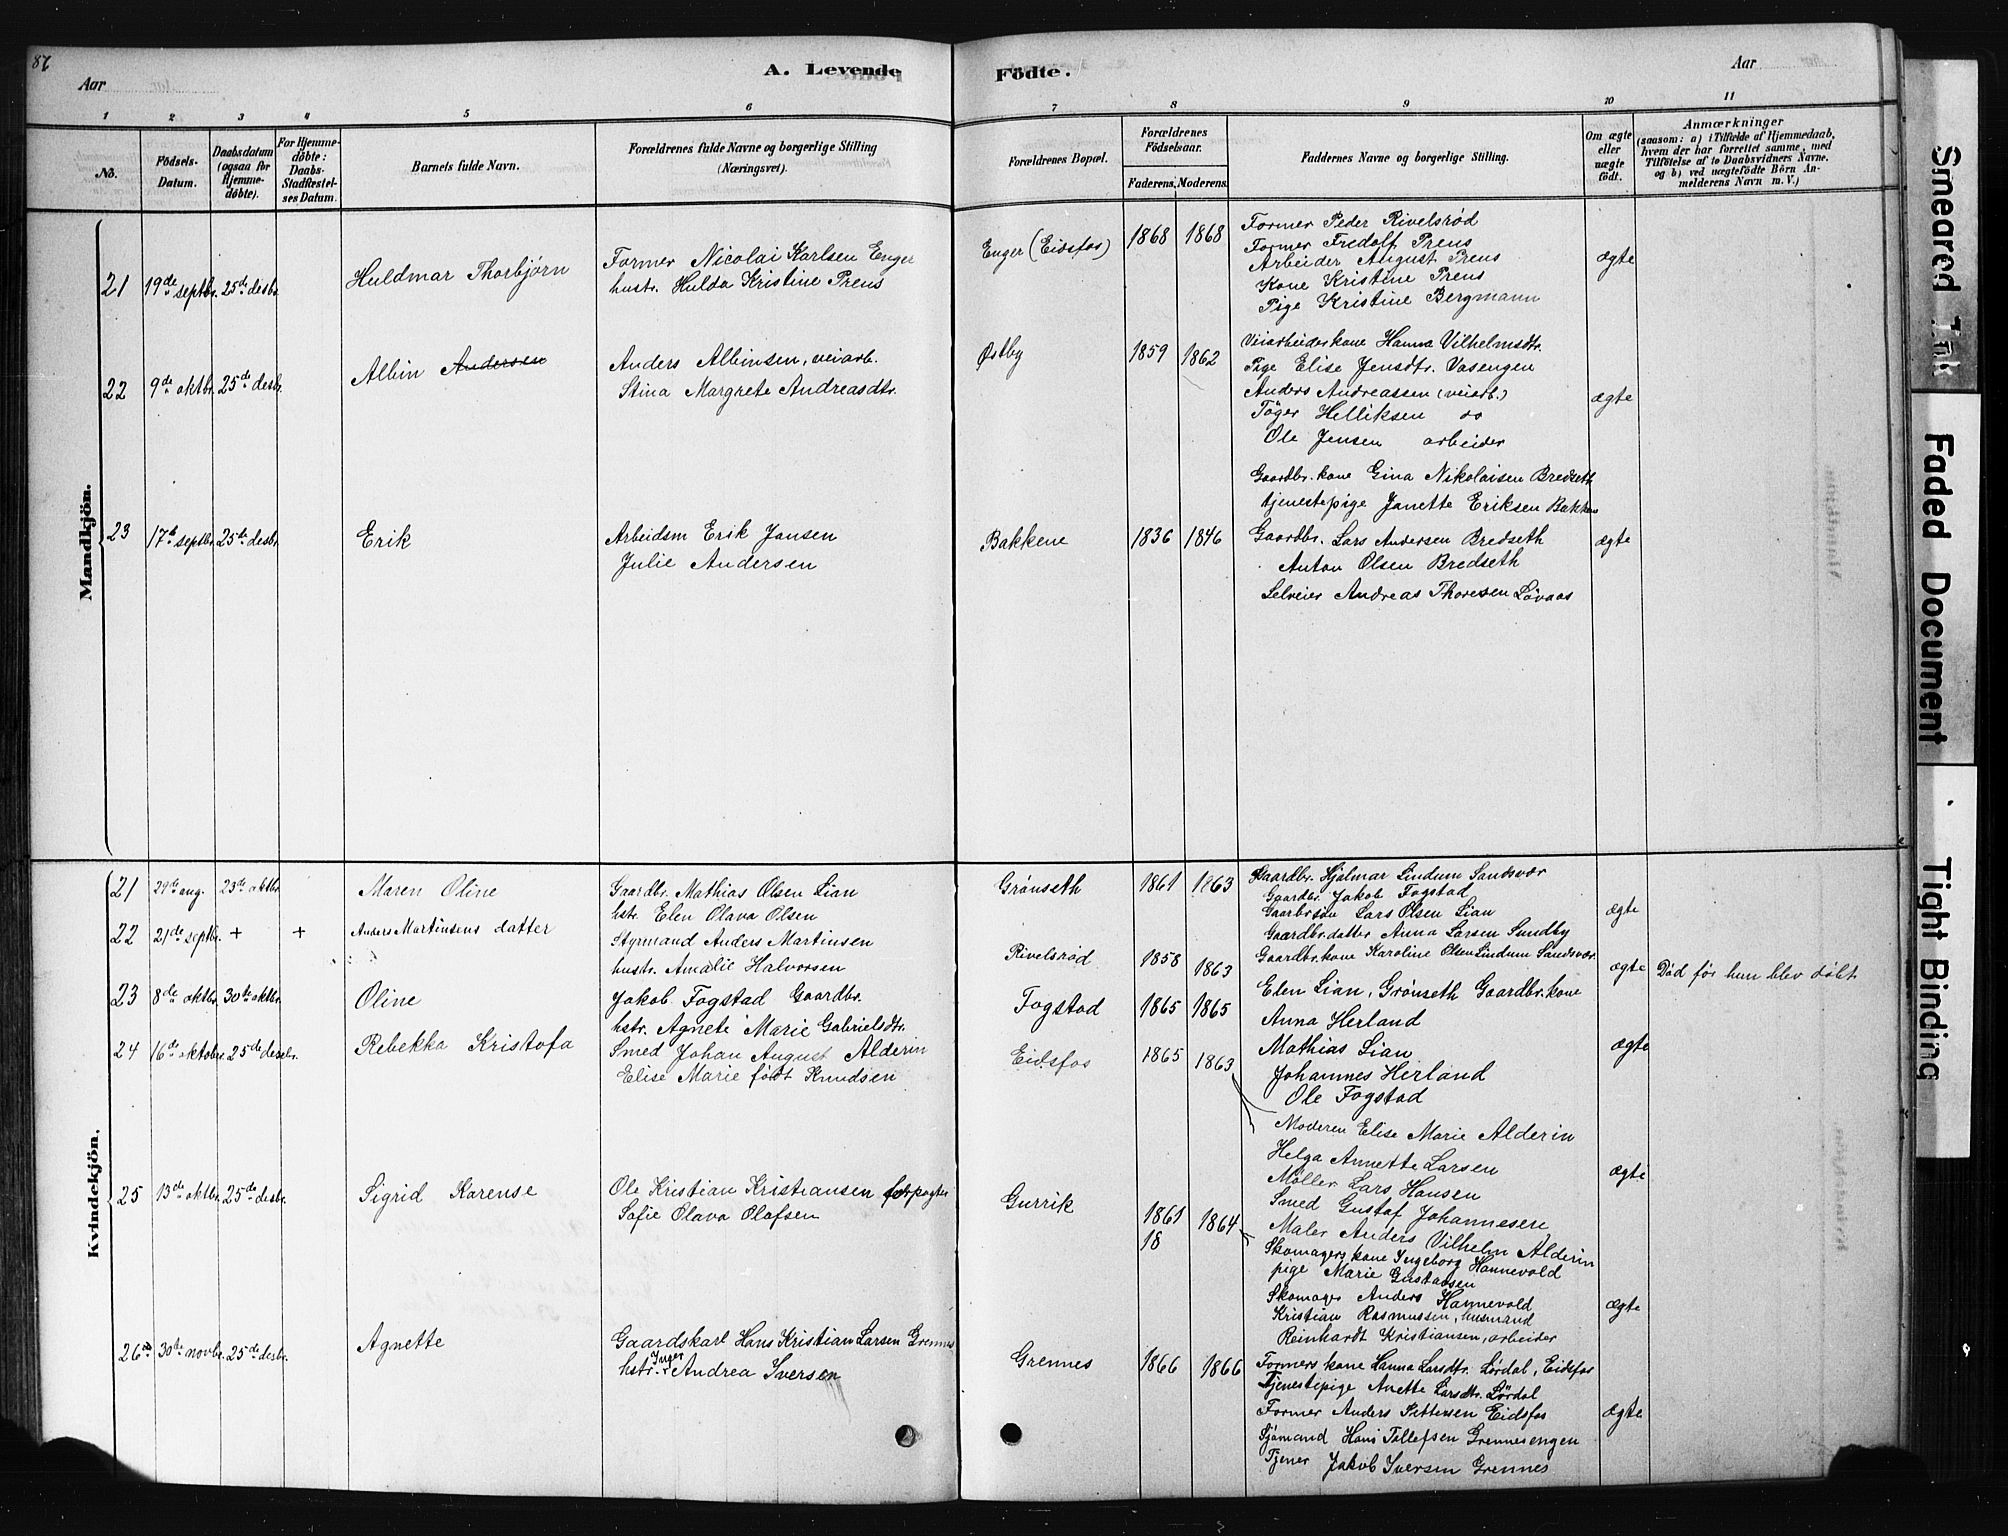 87
Aar
A. Levende
Födte.
Aar
1 2 3 4 5 6 7 8 9 10 11
No.
Födsels-Datum.
Daabsdatum (ogsaa for Hjemme-döbte).
For Hjemme-döbte: Daabs-Stadfæstel-ses Datum.
Barnets fulde Navn.
Forældrenes fulde Navne og borgerlige Stilling (Næringsvei).
Forældrenes Bopæl.
Forældrenes Födselsaar.
Faderens. Moderens.
Faddernes Navne og borgerlige Stilling.
Om ægte eller uægte födt.
Anmærkninger
(saasom: a) i Tilfælde af Hjemmedaab, hvem der har forrettet samme, med Tilföielse af to Daabsvidners Navne. og b) ved uægtefödte Börn An-melderens Navn m. V.)
Mandkjön.
21 19de septbr. 25de desbr. Huldmar Thorbjørn
Former Nicolai Karlsen Enger
hustr. Hulda Kristine Prens
Enger (Eidsfos) 1868 1868
Former Peder Rivelsrød
Former Fredolf Prens
Arbeider August Prens
Kone Kristine Prens
Pige Kristine Bergmann
ægte
22 9de oktbr. 25de desbr. Albin Andersen
Anders Albinsen, veiarb.
Stina Margrete Andreasdtr.
Østby 1859 1862
Veiarbeiderkone Hanna Vilhelmsdtr.
Pige Elise Jensdtr. Vasengen
Anders Andreassen (veiarb.)
Tøger Helliksen do
Ole Jensen arbeider
ægte
23 17de septbr. 25de desbr. Erik
Arbeidsm Erik Jansen
Julie Andersen
Bakkene 1836 1846
Gaardbr. kone Gina Nikolaisen Bredseth
tjenestepige Janette Eriksen Bakken
Gaardbr. Lars Andersen Bredseth
Anton Olsen Bredseth
Selveier Andreas Thoresen Løvaas
ægte
Kvindekjön.
21 29de aug. 23de oktbr. Maren Oline
Gaardbr. Mathias Olsen Lian
hstr. Elen Olava Olsen
Grønseth 1861 1863
Gaardbr. Hjalmar Lindum Sandsvær
Gaardbr. Jakob Fogstad
Gaarbrsøn Lars Olsen Lian
Gaardbr.datter Anna Larsen Sundby
Gaardbr. kone Karoline Olsen Lindum Sandsvær.
ægte
22 21de septbr. + + Anders Martinsens datter
Styrmand Anders Martinsen
hustr. Amalie Halvorsen
Rivelsrød 1858 1863
ægte
Død før hun blev døbt.
23 8de oktbr. 30te oktbr. Oline
Jakob Fogstad Gaardbr.
hstr. Agnete Marie Gabrielsdtr.
Fogstad 1865 1865
Elen Lian, Grønseth Gaardbr. kone
Anna Herland
Mathias Lian
Johannes Herland
Ole Fogstad
ægte
24 16de oktobr. 25de desbr. Rebekka Kristofa
Smed Johan August Alderin
Elise Marie født Knudsen
Eidsfos 1865 1863
Moderen Elise Marie Alderin
Helga Annette Larsen
Møller Lars Hansen
Smed Gustaf Johannesen
Maler Anders Vilhelm Alderin
ægte
25 13de oktbr. 25de desbr. Sigrid Karense
Ole Kristian Kristiansen forpagter
Sofie Olava Olafsen
Gurrik 1861 1864
18
Skomagers kone Ingeborg Hannevold
pige Marie Gustavsen
Skomager Anders Hannevold
Kristian Rasmussen, husmand
Reinhardt Kristiansen, arbeider
ægte
26 30te novbr. 25de desbr. Agnette
Gaardskarl Hans Kristian Larsen Grennes
hstr. Inger Andrea Iversen
Grennes 1866 1866
Formers kone Hanna Larsdtr. Lørdal, Eidsfos
Tjenestepige Anette Larsdtr. Lørdal
Former Anders Pettersen Eidsfos
Sjømand Hans Tollefsen Grennesengen
Tjener Jakob Iversen Grennes
ægte
Smeared Ink
Faded Document
Tight Binding